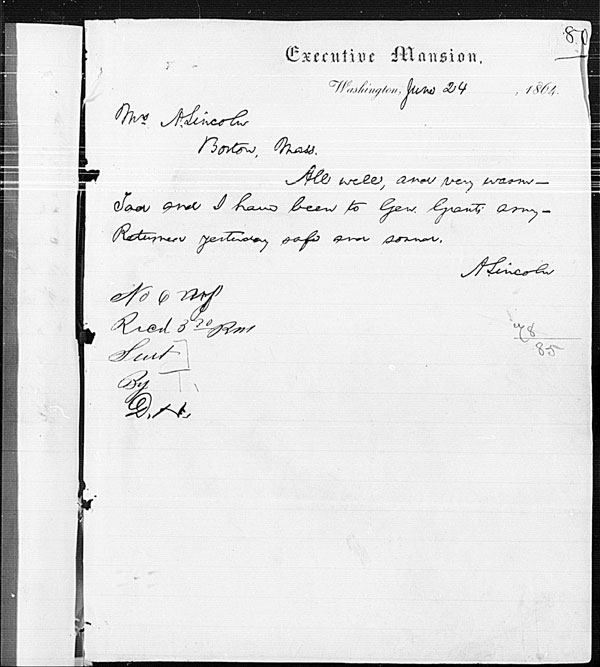 87
Executive Mansion,
Washington, June 24, 1864.
Mrs. A. Lincoln
Boston, Mass.
All well, and very warm—
Tad and I have been to Gen. Grant's army—
Returned yesterday safe and sound.
A. Lincoln
No 6
Recd 3 20 Pm
Sent
By
D. H.
78
85